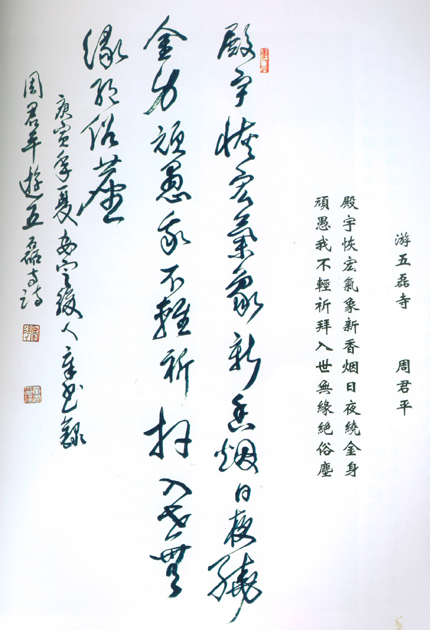 游五磊寺 周君平
殿宇恢宏氣象新香烟日夜繞金身
頑愚我不輕祈拜入世無緣絕俗塵
殿宇恢宏氣象新香烟日夜繞
金身頑愚我不輕祈拜入世無
緣絕俗塵
庚寅年夏後人書錄
周君平遊五磊寺詩